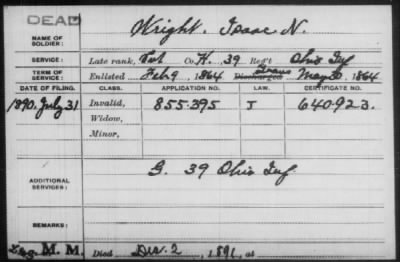 DEAD
NAME OF SOLDIER: Wright, Isaac N.
SERVICE: Late rank, Pvt Co. K, 39 Reg't Ohio Inf
TERM OF SERVICE: Enlisted Feb 9, 1864 Discharged May 30, 1864
DATE OF FILING. CLASS. APPLICATION NO. LAW. CERTIFICATE NO.
1890. July 31 Invalid, 855.395 J 640.923.
Widow,
Minor,
ADDITIONAL SERVICES: G. 39 Ohio Inf
REMARKS:
M. M. Died Dec. 2, 1891, at